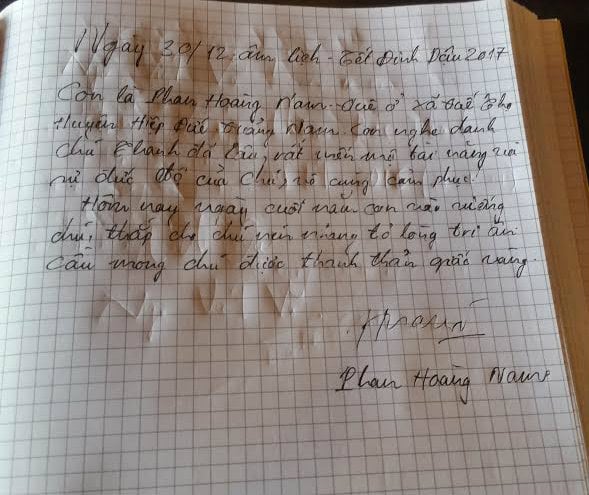 Ngày 30/12 âm lịch - Tết Đinh Dậu 2017
Con là Phan Hoàng Nam. Quê ở xã Quế Thọ
Huyện Hiệp Đức Quảng Nam. Con nghe danh
chú Thanh đã lâu, rất mến mộ tài năng và
sự đức độ của chú, vô cùng cảm phục!
Hôm nay ngày cuối năm con vào viếng
chú, thắp cho chú nén nhang tỏ lòng tri ân
cầu mong chú được thanh thản giấc vàng.
Phan Hoàng Nam